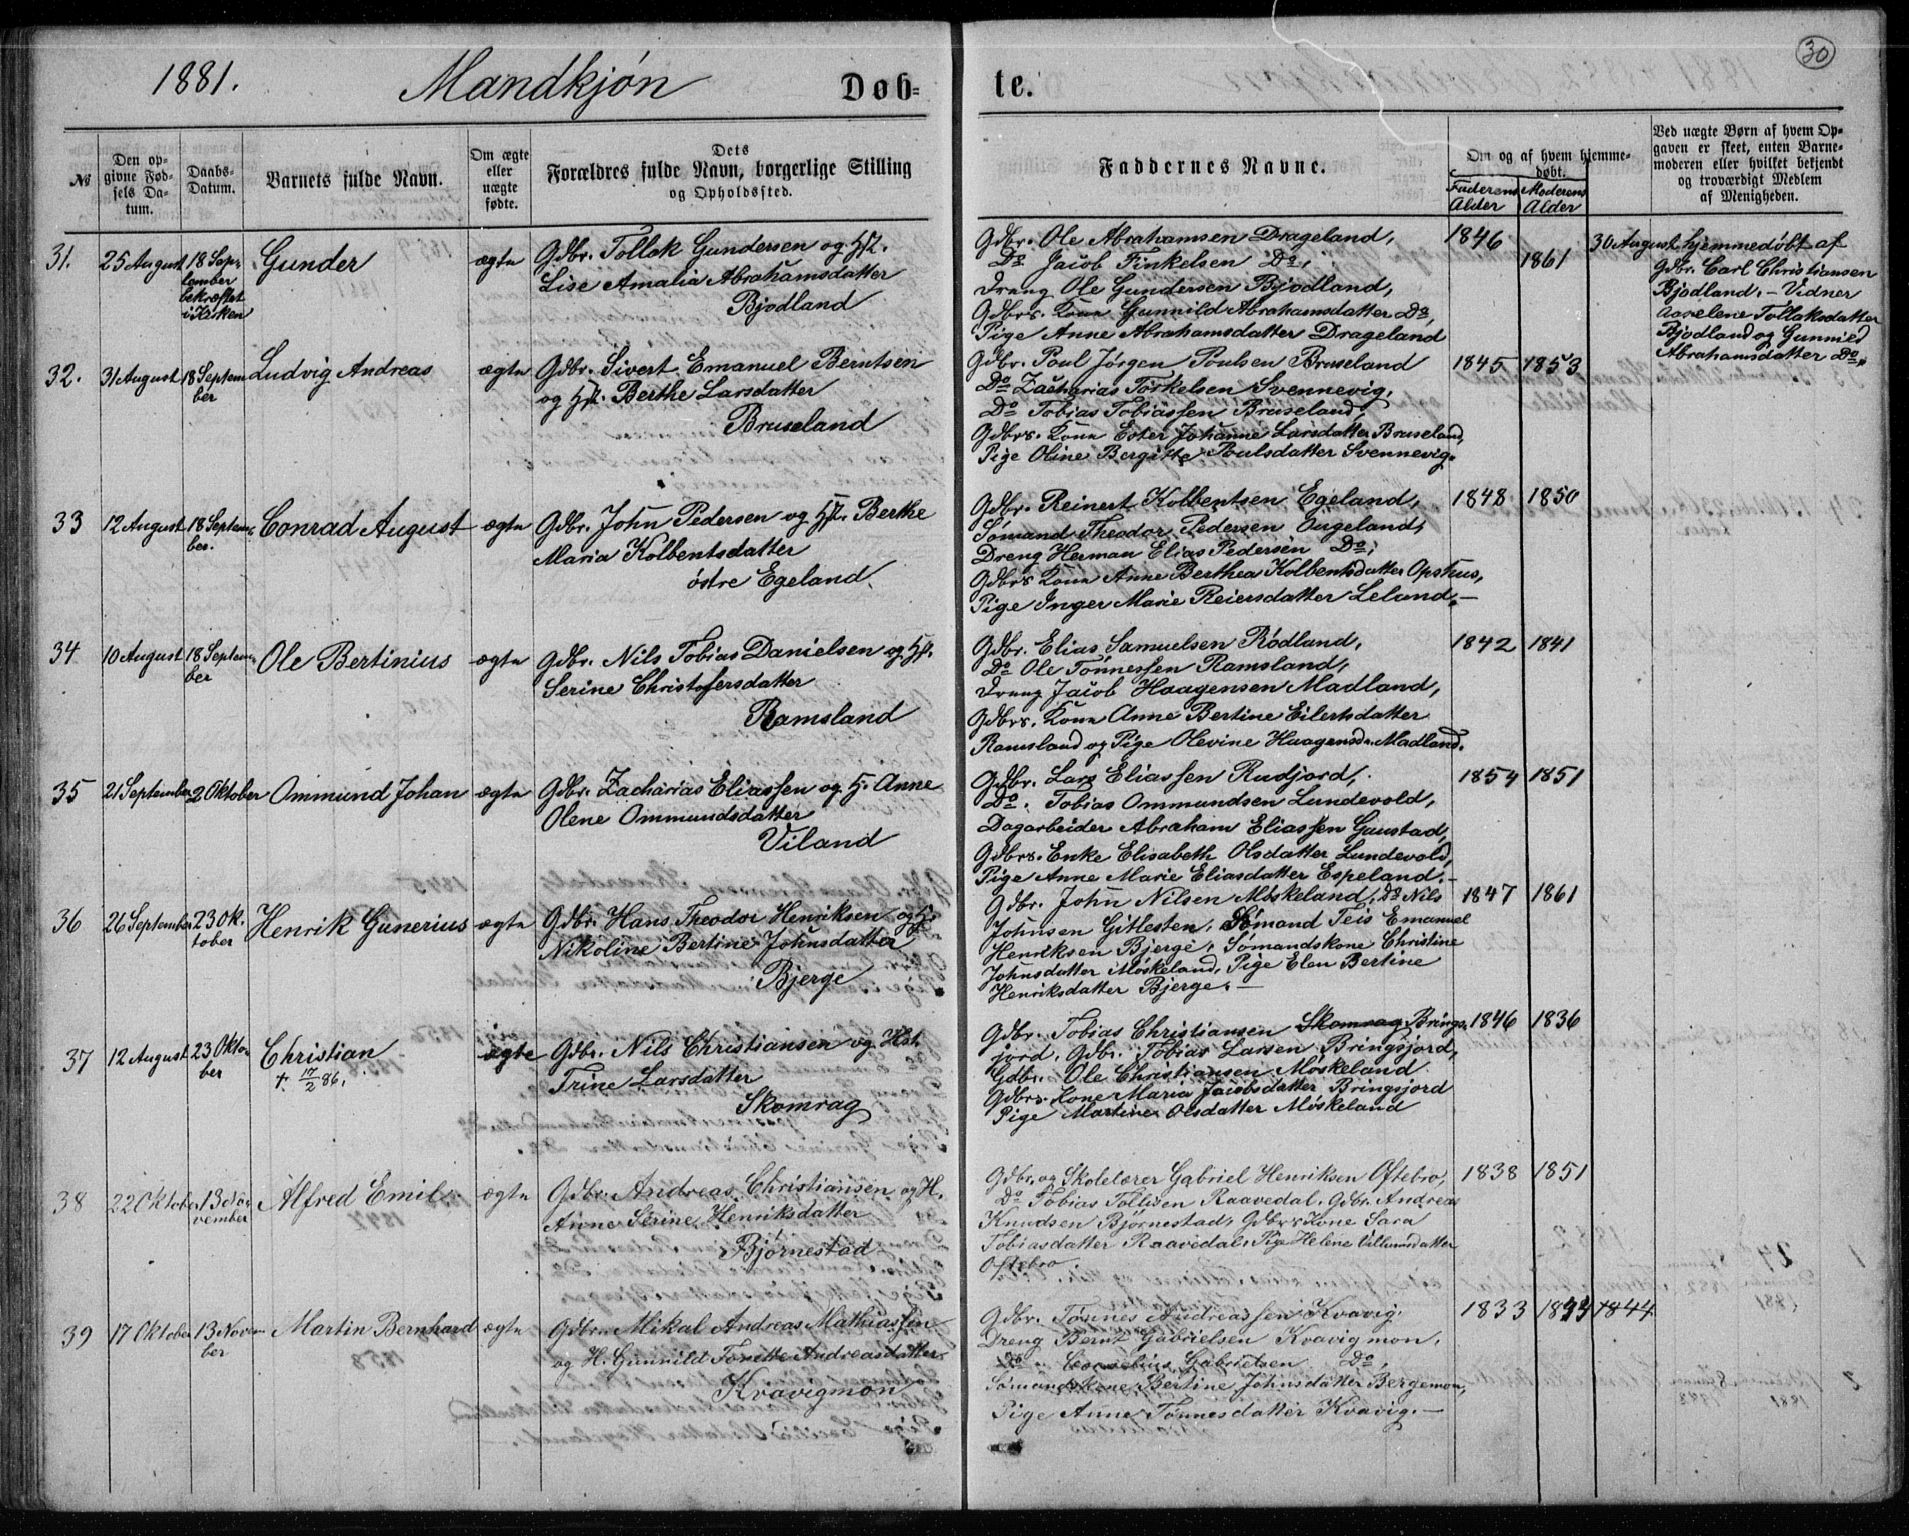 1881. Mandkjøn Døb- te. 30
№
Den op-
givne Fød-
sels Da-
tum.
Daabs-
Datum.
Barnets fulde Navn.
Om ægte
eller
uægte
fødte.
Dets
Forældres fulde Navn, borgerlige Stilling
og Opholdssted.
Faddernes Navne.
Om og af hvem hjemme-
døbt.
Faderens Alder
Moderens Alder
Ved uægte Børn af hvem Op-
gaven er skeet, enten Barne-
moderen eller hvilket bekjendt
og troværdigt Medlem
af Menigheden.
31. 25 August 18 Sep-
tember
bekræftet
i Kirken
Gunder
ægte
Gdbr. Tollak Gundersen og Hst.
Lise Amalia Abrahamsdatter
Bjodland
Gdbr. Ole Abrahamsen Drageland,
Do Jacob Tinkelsen Do,
Dreng Ole Gundersen Bjodland,
Gdbrs. Kone Gunnild Abrahamsdatter Do,
Pige Anne Abrahamsdatter Drageland
1846 1861
30 August hjemmedøbt af
Gdbr. Carl Christiansen
Bjodland. – Vidner
Aaselene Tollaksdatter
Bjodland og Gunnild
Abrahamsdatter Do.
32. 31 August 18 Septem
ber
Ludvig Andreas
ægte
Gdbr. Sivert Emanuel Berntsen
og Hst. Berthe Larsdatter
Bruseland
Gdbr. Poul Jørgen Poulsen Bruseland
Do Zacharias Torkelsen Svennevig,
Do Tobias Tobiassen Bruseland,
Gdbrs. Kone Ester Johanne Larsdatter Bruseland,
Pige Oline Bergitte Poulsdatter Svennevig.
1845 1853
33 12 August 18 Septem-
ber.
Conrad August
ægte
Gdbr. John Pedersen og Hst. Berthe
Maria Kolbentsdatter
østre Egeland.
Gdbr. Reinert Kolbentsen Egeland,
Sømand Theodor Pedersen Augeland,
Dreng Herman Elias Pedersen Do,
Gdbrs Kone Anne Berthea Kolbentsdatter Opshus,
Pige Inger Marie Reiersdatter Leland. –
1848 1850
34 10 August 18 Septem-
ber
Ole Bertinius
ægte
Gdbr. Nils Tobias Danielsen og Hst.
Serine Christofersdatter
Ramsland
Gdbr. Elias Samuelsen Rødland,
Do Ole Tønnessen Ramsland,
Dreng Jacob Haagensen Madland,
Gdbrs. Kone Anne Bertine Eilertsdatter
Ramsland og Pige Olevine Haagensdr. Madland.
1842 1841
35 21 September 2 Oktober
Ommund Johan
ægte
Gdbr. Zacharias Eliassen og H. Anne
Olene Ommundsdatter
Viland
Gdbr. Lars Eliassen Rudjord,
Do. Tobias Ommundsen Lundevold,
Dagarbeider Abraham Eliassen Gaustad,
Gdbrs. Enke Elisabeth Olsdatter Lundevold,
Pige Anne Marie Eliasdatter Espeland. –
1854 1851
36 26 September 23 Ok-
tober
Henrik Gunerius
ægte
Gdbr. Hans Theodor Henriksen og H.
Nikoline Bertine Johnsdatter
Bjerge
Gdbr. John Nilsen Møskeland, Do Nils
Johnsen Gitlesten, Sømand Teis Emanuel
Henriksen Bjerge, Sømandskone Christine
Johnsdatter Møskeland, Pige Elen Bertine
Henriksdatter Bjerge. –
1847 1861
37 12 August 23 Okto-
ber
Christian
† 17/2 86.
ægte
Gdbr. Nils Christiansen og Hst
Trine Larsdatter
Skomrag
Gdbr. Tobias Christiansen Skomrag Brings-
jord, Gdbr. Tobias Larsen Bringsjord,
Gdbr. Ole Christiansen Møskeland
Gdbrs. Kone Maria Jacobsdatter Bringsjord
Pige Martine Olsdatter Møskeland
1846 1836
38 22 Oktober 13 No-
vember
Alfred Emil
ægte
Gdbr. Andreas Christiansen og H.
Anne Serine Henriksdatter
Bjørnestad
Gdbr. og Skolelærer Gabriel Henriksen Oftebro,
Do Tobias Tollisen Raavedal, Gdbr. Andreas
Knudsen Bjørnestad, Gdbrs Kone Sara
Tobiasdatter Raavedal, Pige Helene Villumsdatter
Oftebro
1838 1851
39 17 Oktober 13 Novem-
ber
Martin Bernhard
ægte
Gdbr. Mikal Andreas Mathiassen
og H. Gunnild Tonette Andreasdatter
Kvavigmon
Gdbr. Tønnes Andreassen Kvavig,
Dreng Bernt Gabrielsen Kvavigmon,
Do Cornelius Gabrielsen Do,
Sømandskone Bertine Johnsdatter Bergemon,
Pige Anne Tønnesdatter Kvavig. –
1833 1844